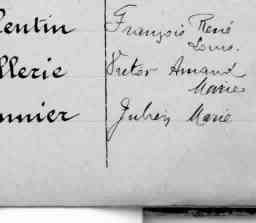 lentin François René
Louis.
llerie Victor Amand
Marie
nnier Julien Marie